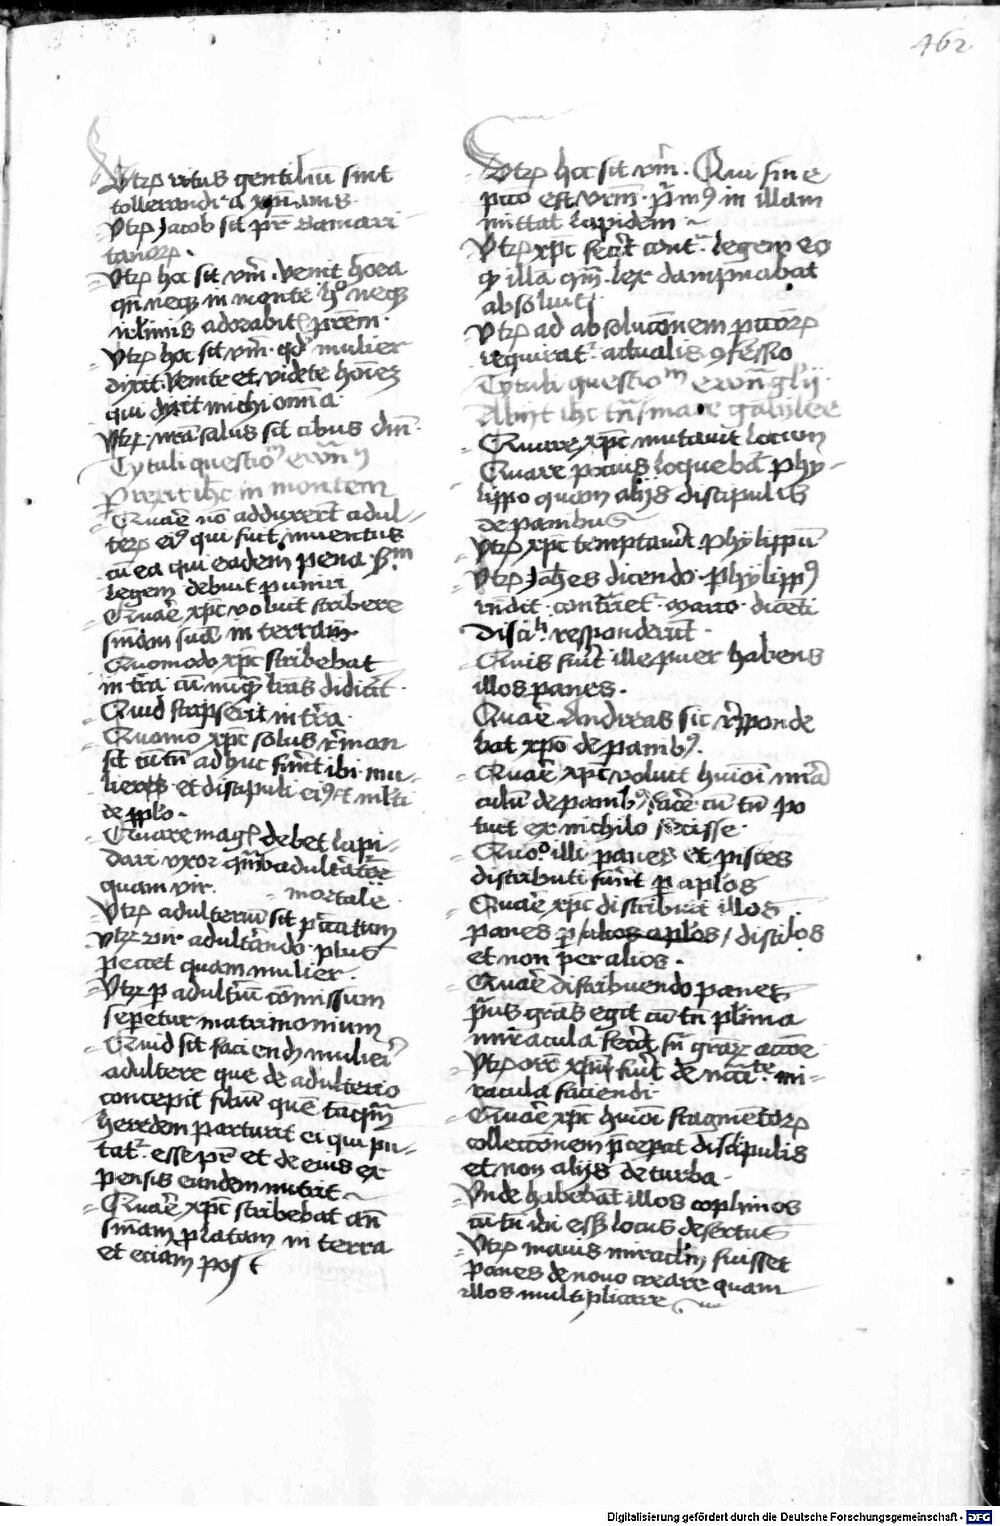 462
Utrum ritus gentilium sint
tollerandi a xpianis
Utrum Jacob sit pr Samari
tanorum.
Utrum hoc sit vm. venit hora
qn neqz in monte h° neqz
adorabitis prem.
Utrum hoc sit vm. qd mulier
dixit venite et videte hoiem
qui dixit michi omnia
Utrum nra salus sit cibus dni
Tytuli questionum
Perrexit ihc in montem
Quare no adduxerunt adul-
terum eius qui fuit inventus
cu ea qui eadem pena scdm
legem debuit puniri
Quare xpc voluit scribere
sniam sua in terram
Quomodo xpc scribebat
in tra cu nunqz lras didicit
Quid scripserit in tra.
Quomo xpc solus reman
sit cu tn adhuc sunt ibi mu-
lieres et discipuli eius et multi
de pplo.
Quare magis debet lapi-
dari vxor
quam vir. mortale
Utrum adulterium sit peccatum
Utrum vir adulterando plus
peccet quam mulier.
Utrum per adulterium comissum
sepetur matrimonium
Quid sit faciendum mulieri
adultere que de adulterio
concepit filium quem tamqm
heredem parturit ei qui pu-
tatur esse pr et de eius ex
pensis eundem nutrit
Quare xpc scribebat an
sniam prolatam in terra
et eciam post
Utrum hoc sit vm. Qui sine
pcco est vrm. primus in illam
mittat lapidem
Utrum xpc fecit contra legem eo
qd illa quam lex dampnabat
absoluit
Utrum ad absolucionem peccatorum
requiratur actualis confessio
Tytuli questionum ewangelij
Abijt ihc trans mare galylee
Quare xpc mutavit locum
Quare pocius loquebat phy-
lippo quam alijs discipulis
de panibus
Utrum xpc temptavit phylippum
Utrum Johes dicendo phylippus
rndit contrariet marco dicenti
discipuli responderunt.
Quis fuit ille puer habens
illos panes.
Quare Andreas sic responde
bat xpo de panibus.
Quare xpc voluit huiusmodi mira
culum de panibus facere cu tn po
tuit ex nichilo fecisse.
Quo° illi panes et pisces
distributi sunt per aplos
Quare xpc distribuit illos
panes per / alios aplos / discilos
et non per alios.
Quare distribuendo panes
prius gras egit cu tn plima
miracula fecit sn graz accoe
Utrum orc xpi fuit de ncctite mi-
racula faciendi
Quare xpc huiusmodi fragmentorum
colleccionem precepat discipulis
et non alijs de turba.
Unde habebat illos cophinos
cu tn ibi esset locus desertus
Utrum maius miraclm fuisset
panes de novo creare quam
illos multiplicare
Digitalisierung gefördert durch die Deutsche Forschungsgemeinschaft - DFG